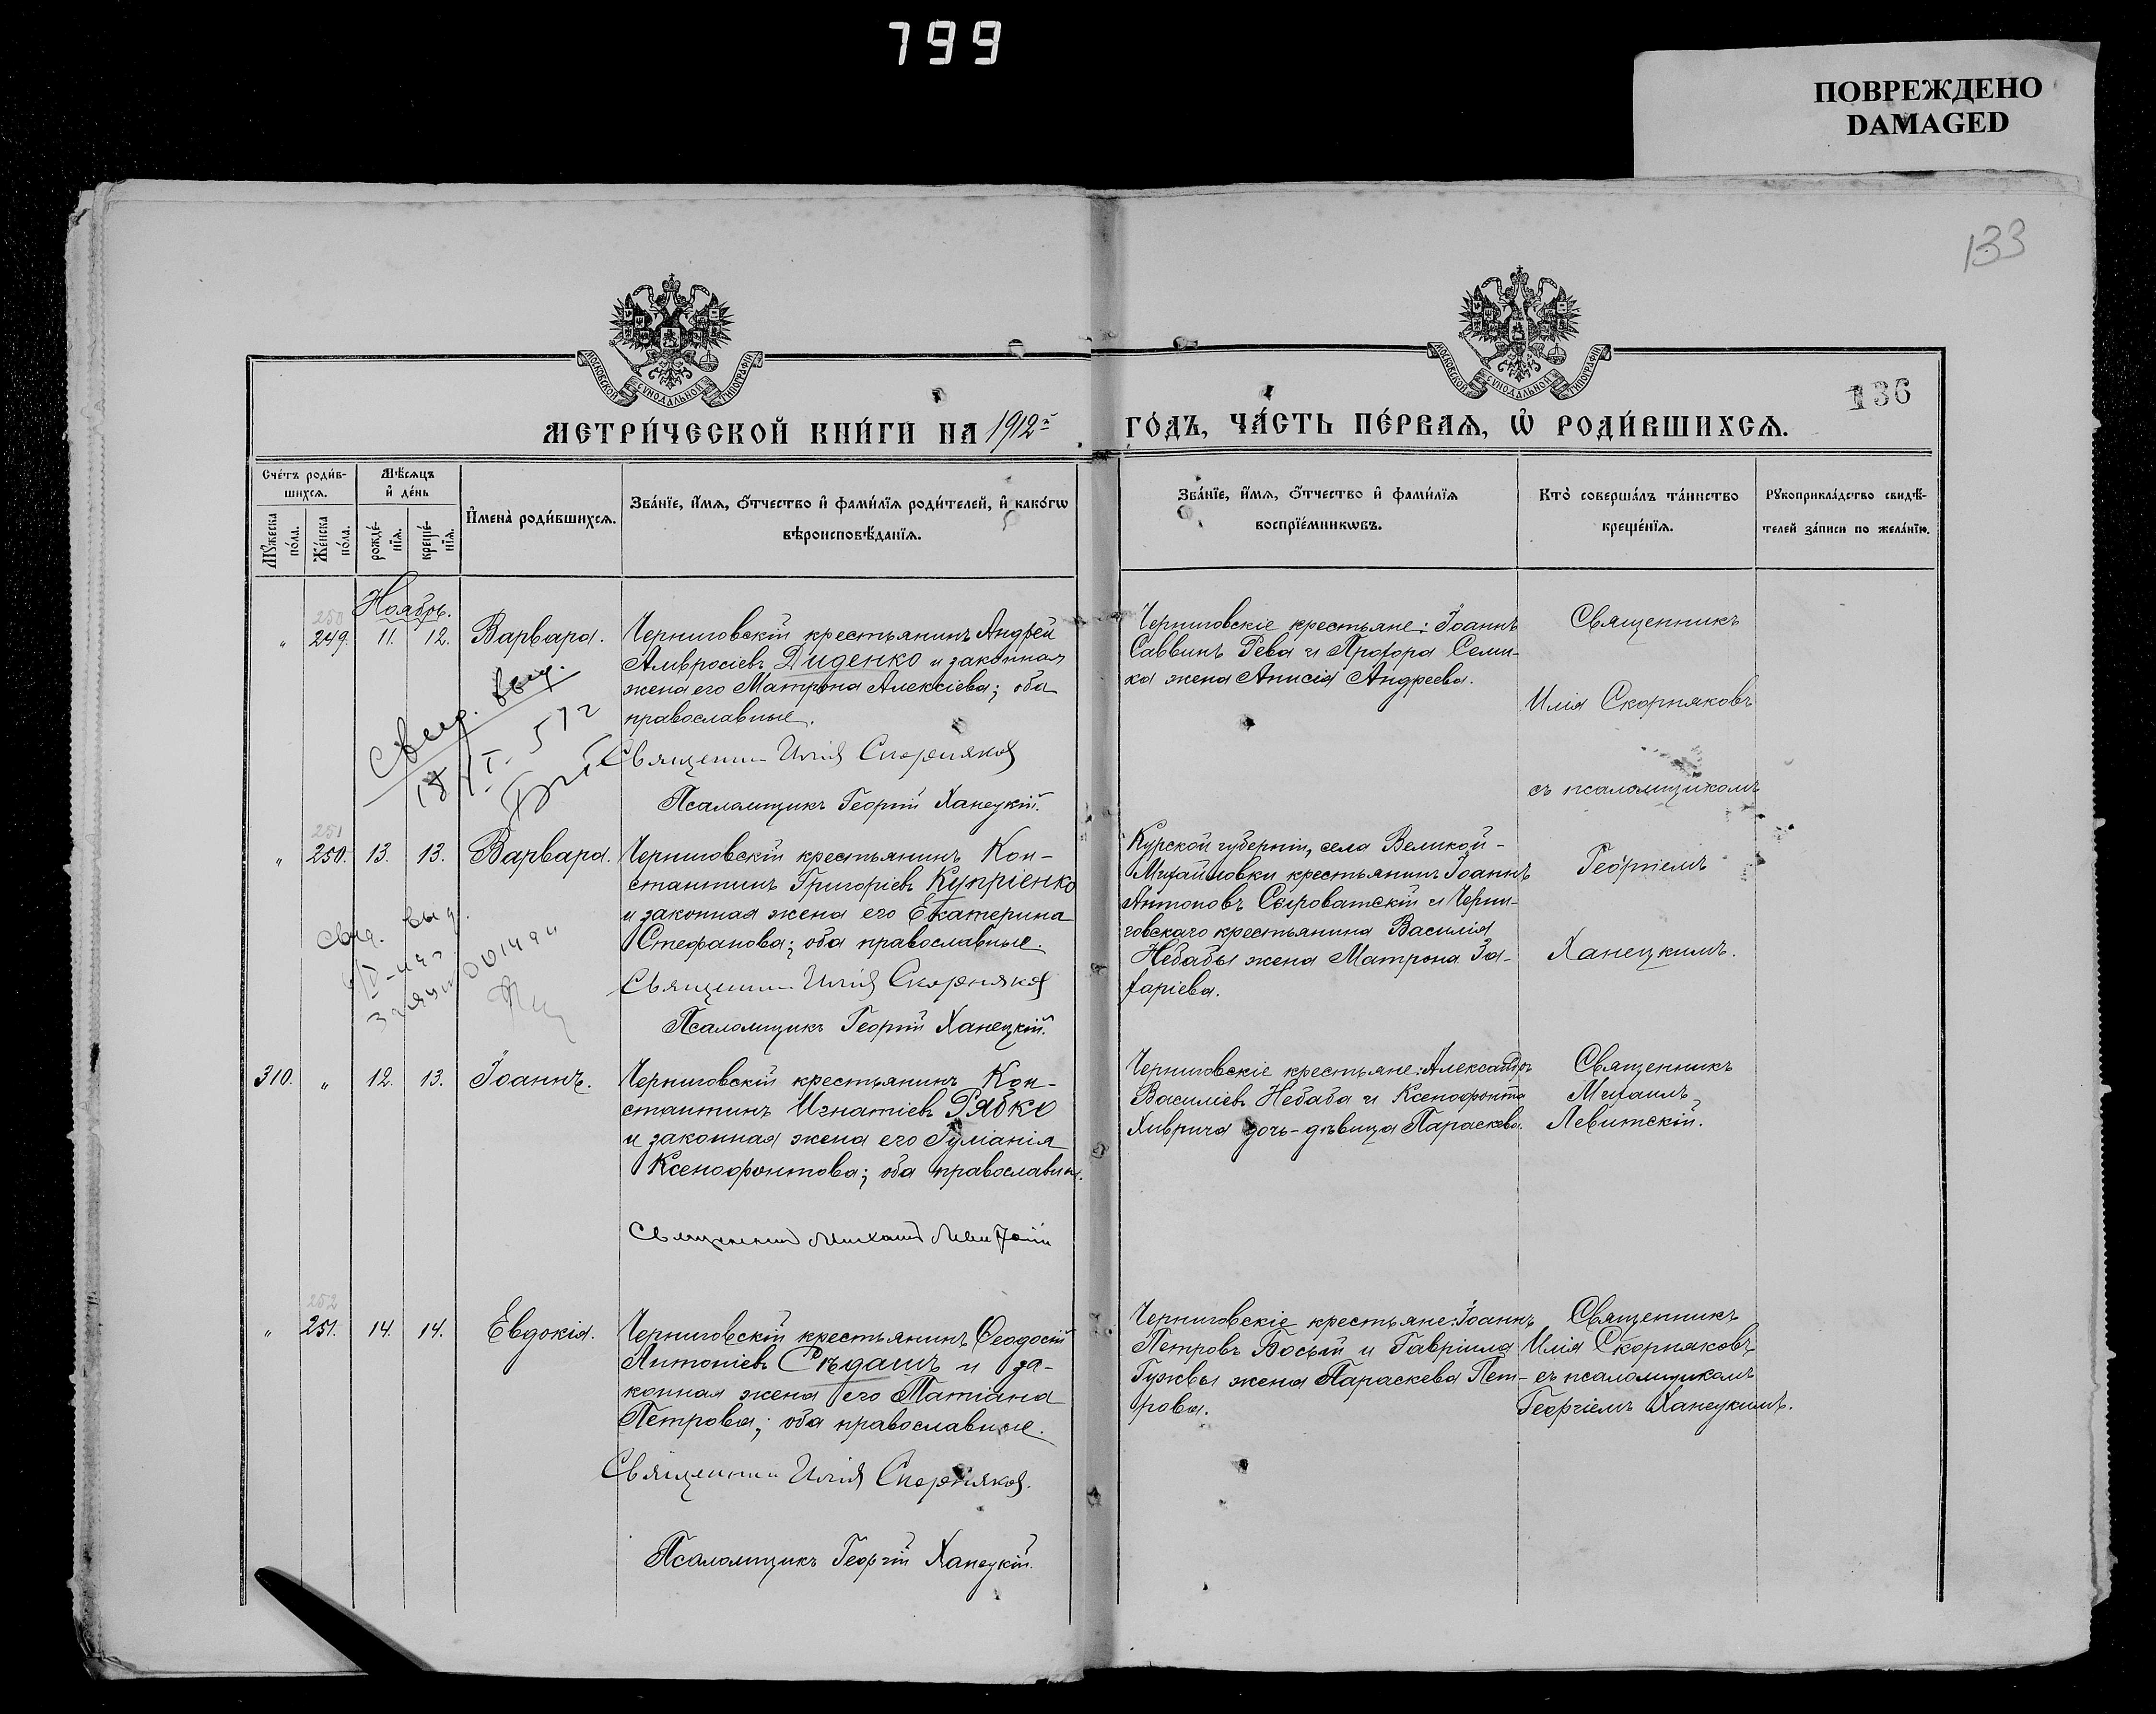 799
ПОВРЕЖДЕНО
DAMAGED
133
МОСКОВСКОЙ СУНОДАЛЬНОЙ ТИПОГРАФІИ
МОСКОВСКОЙ СУНОДАЛЬНОЙ ТИПОГРАФІИ
136
МЕТРИ́ЧЕСКОЙ КНИ́ГИ НА 1912й ГО́ДЪ, ЧА́СТЬ ПЕ́РВАѦ, Ѡ҆ РОДИ́ВШИХСѦ.
Сче́тъ роди́в-
шихсѧ.
Мꙋ́жеска
по́ла.
Же́нска
по́ла.
Мѣ́сѧцъ
и҆ де́нь
рожде́-
нїѧ.
креще́-
нїѧ.
И҆мена̀ роди́вшихсѧ.
Зва́нїе, и҆́мѧ, ѻ҆́тчество и҆ фами́лїѧ роди́телей, и҆ како́гѡ
вѣроисповѣ́данїѧ.
Зва́нїе, и҆́мѧ, ѻ҆́тчество и҆ фами́лїѧ
воспрїе́мникѡвъ.
Кто̀ соверша́лъ та́инство
креще́нїѧ.
Рꙋкоприкла́дство свидѣ́-
телей за́писи по жела́нїю.
Ноябрь.
250
" 249. 11. 12. Варвара.
Черниговскій крестьянинъ Андрей
Амвросіевъ Диденко и законная
жена его Матрона Алексіева; оба
православные.
Священник Илія Скорняков
Псаломщикъ Георгій Ханецкій.
свид. выд.
Черниговскіе крестьяне: Іоаннъ
Саввинъ Рева и Прохора Семи-
ка жена Анисія Андреева.
Священникъ
Илія Скорняковъ
съ псаломщикомъ
251
" 250. 13. 13. Варвара.
Черниговскій крестьянинъ Кон-
стантинъ Григоріевъ Купріенко
и законная жена его Екатерина
Стефанова; оба православные.
Священник Илія Скорняков
Псаломщикъ Георгій Ханецкій.
свид. выд.
Курской губерніи, села Великой-
Михайловки крестьянинъ Іоаннъ
Антоновъ Сыроватскій и Черни-
говскаго крестьянина Василія
Небабы жена Матрона За-
харіева.
Георгіемъ
Ханецкимъ.
310. " 12. 13. Іоаннъ.
Черниговскій крестьянинъ Кон-
стантинъ Игнатіевъ Рябко
и законная жена его Іуліанія
Ксенофонтова; оба православн.
Священник Михаил Левитский
Черниговскіе крестьяне: Александръ
Василіевъ Небаба и Ксенофонта
Хиврича дочь-дѣвица Параскева.
Священникъ
Михаилъ
Левитскій.
252
" 251. 14. 14. Евдокія.
Черниговскій крестьянинъ Ѳеодосій
Антоніевъ Сѣдашъ и за-
конная жена его Татіана
Петрова; оба православные.
Священник Илія Скорняков.
Псаломщикъ Георгій Ханецкій.
Черниговскіе крестьяне: Іоаннъ
Петровъ Босый и Гавріила
Гужвы жена Параскева Пет-
рова.
Священникъ
Илія Скорняковъ
съ псаломщикомъ
Георгіемъ Ханецкимъ.